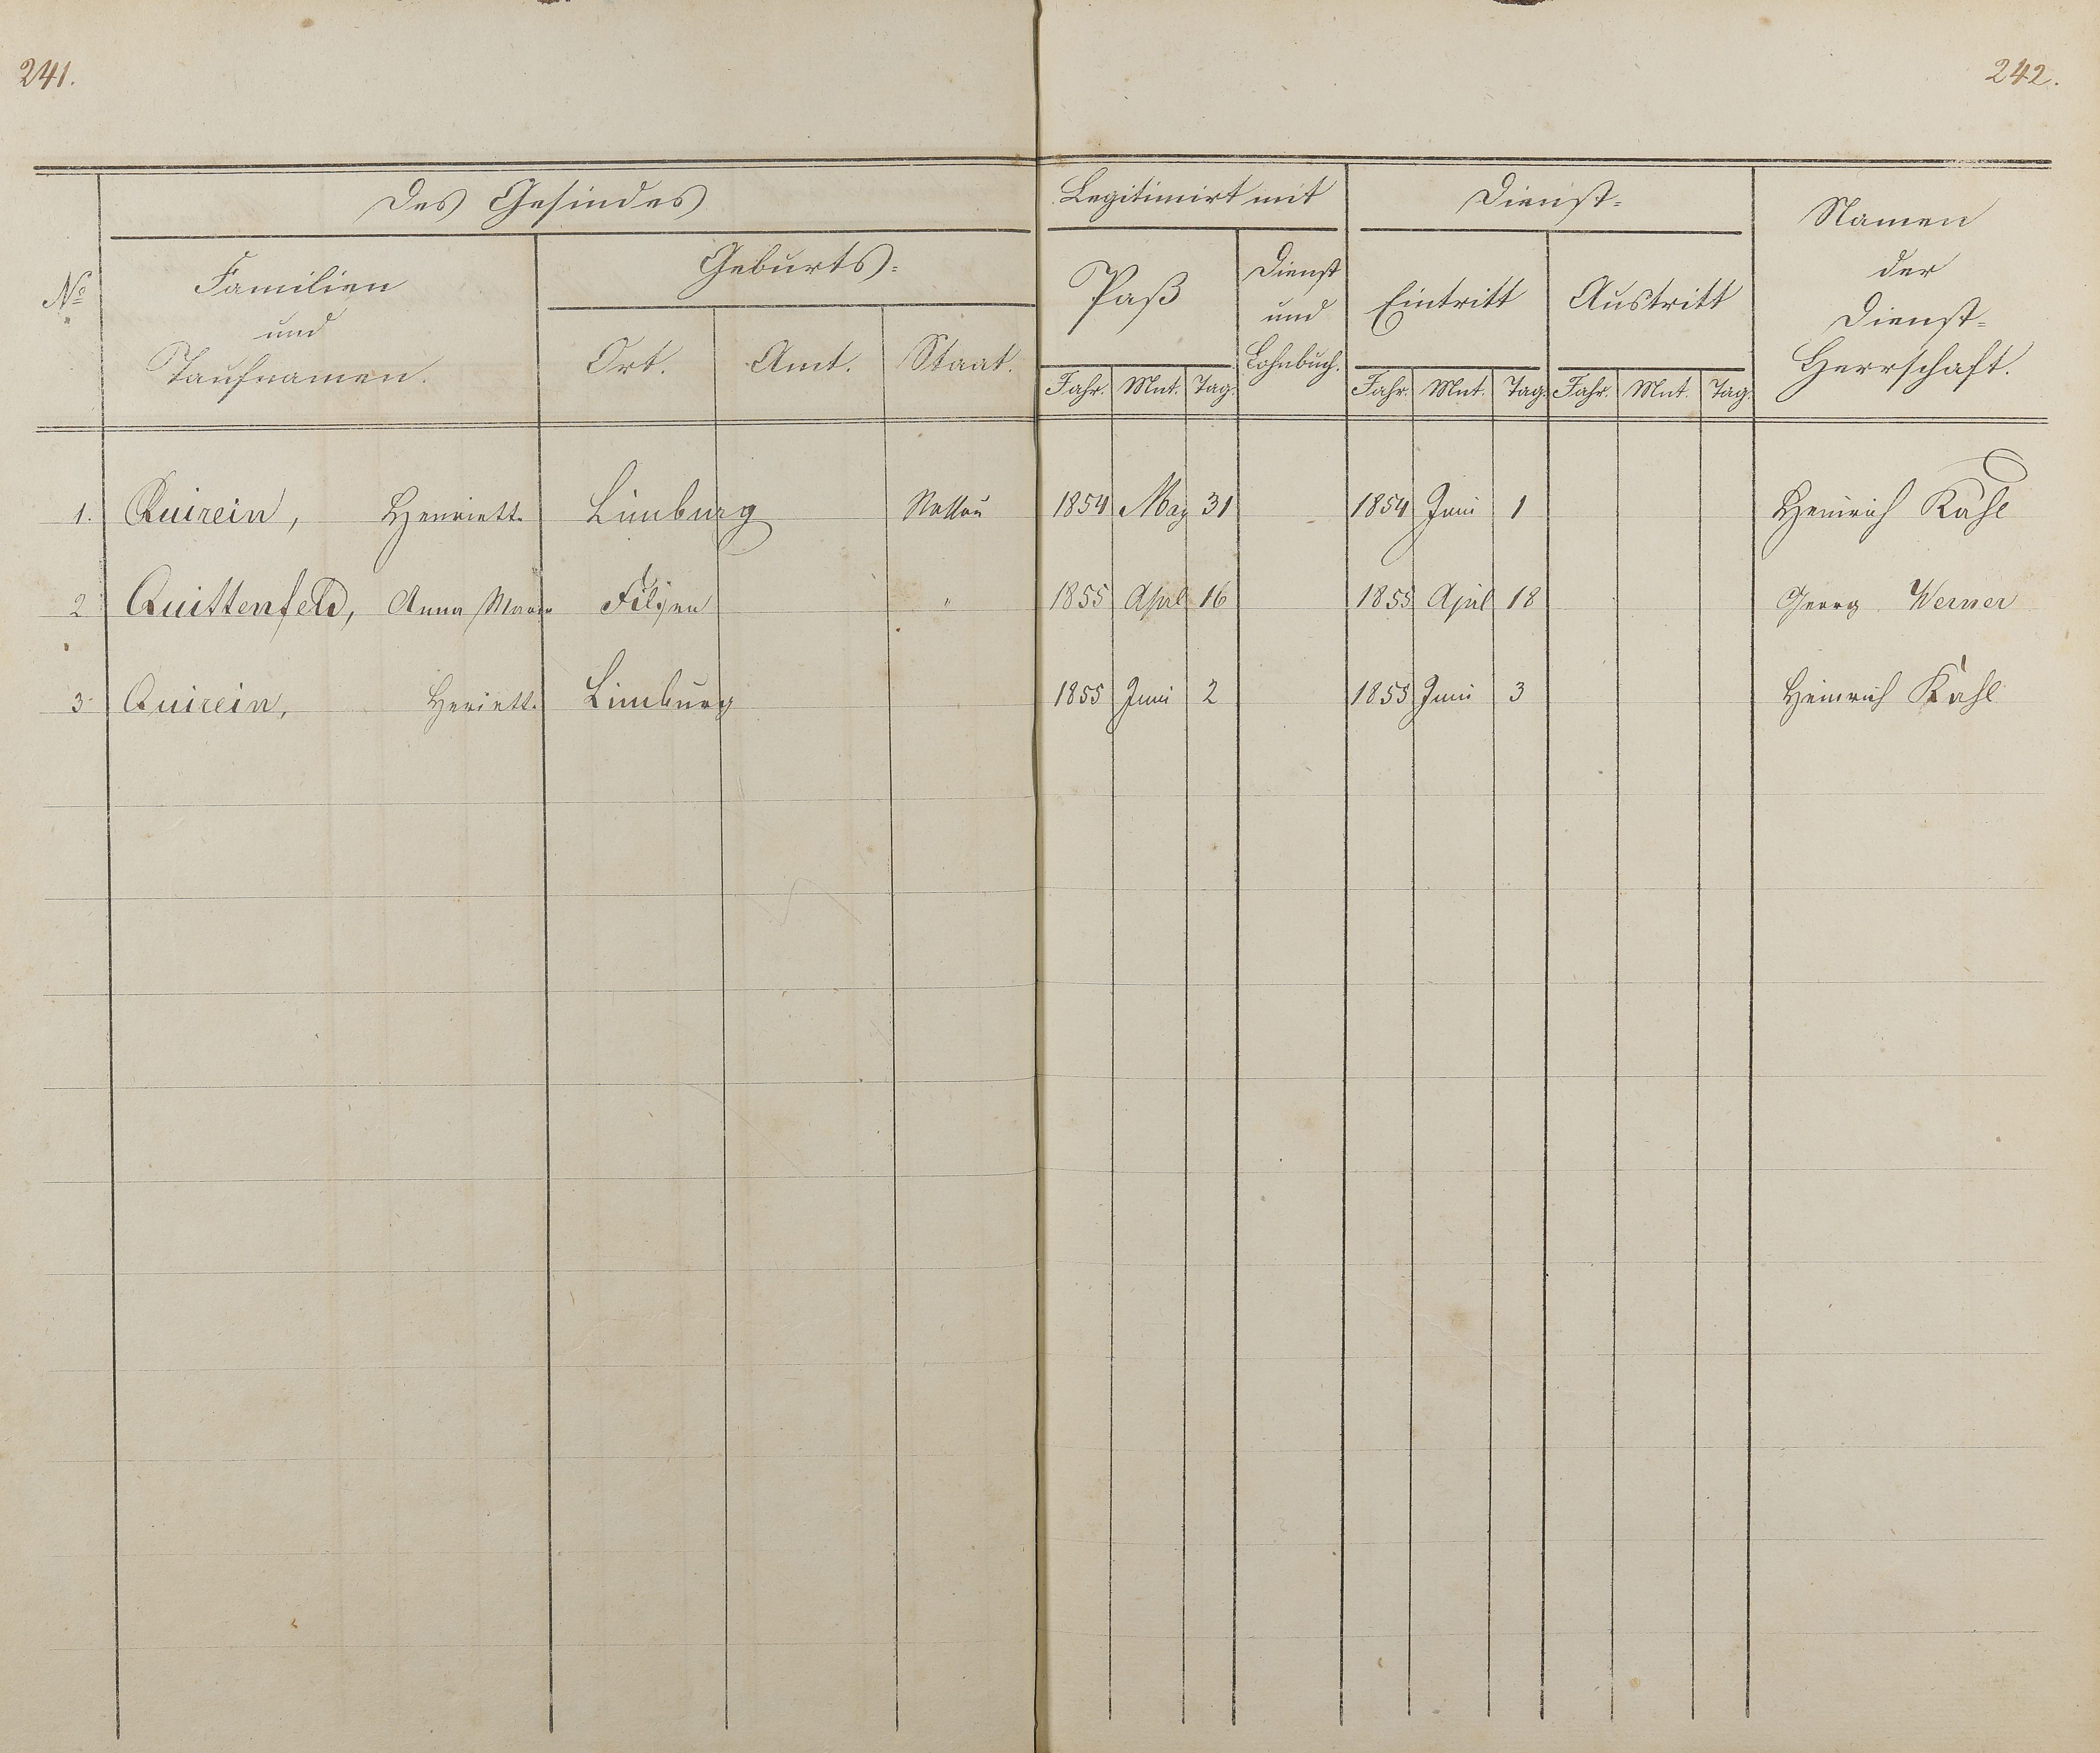 241.
242.
Des Gesindes
Legitimirt mit
Dienst=
Namen
der
Dienst=
Herrschaft.
No
Familien
und
Taufnamen.
Geburts=
Ort. Amt. Staat.
Paß
Dienst
und
Lohnbuch.
Eintritt Austritt
Jahr. Mnt. Tag. Jahr. Mnt. Tag. Jahr. Mnt. Tag.
1. Quirein, Henriett. Limburg Nassau 1854 May 31 1854 Juni 1 Heinrich Kahl
2 Quittenfeld, Anna Maria " 1855 April 16 1855 April 18 Georg Werner
3 Quirein, Heriett. Limburg 1855 Juni 2 1855 Juni 3 Heinrich Kahl